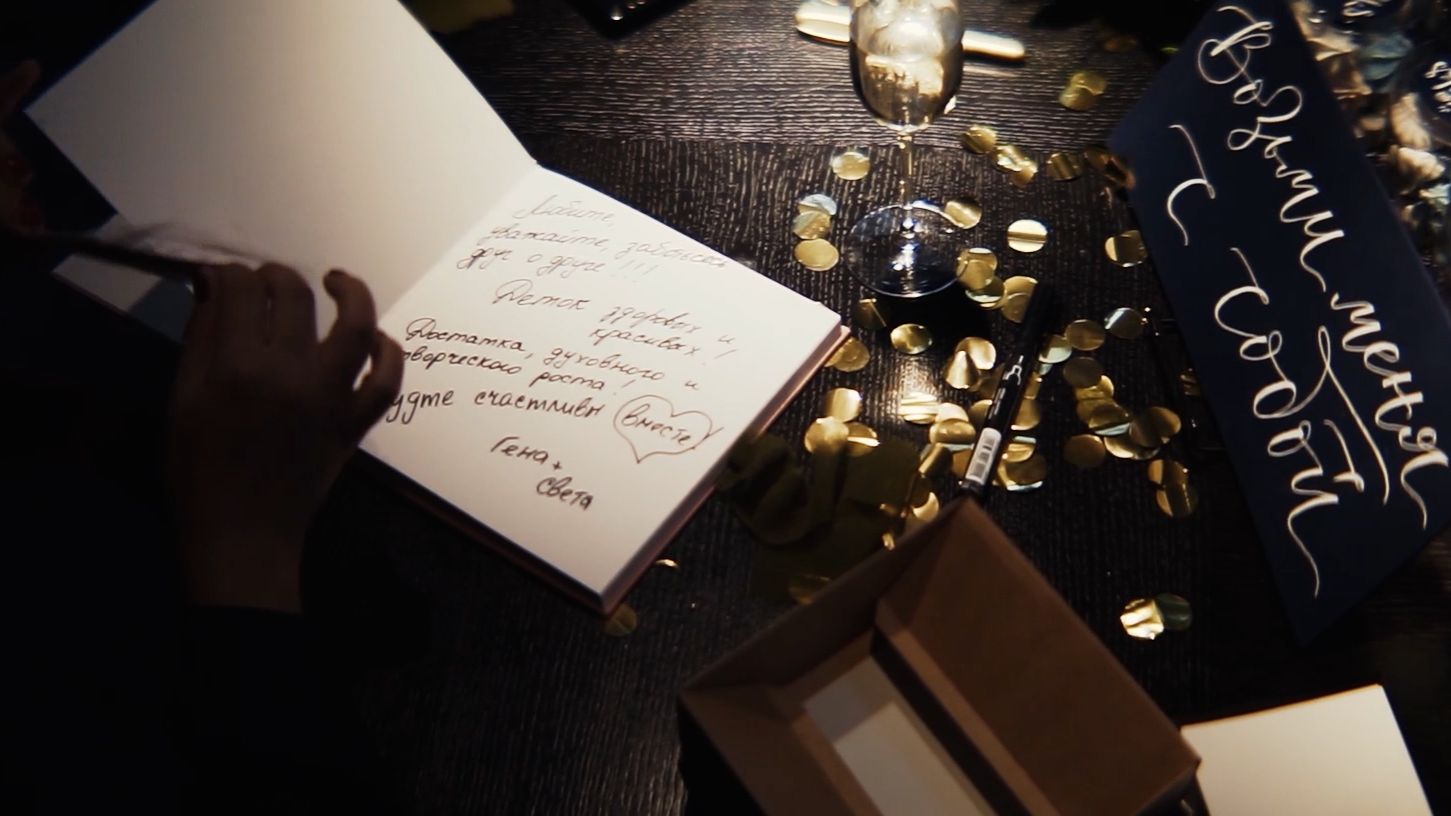 Любите,
уважайте, заботьтесь
друг о друге!!!
Деток здоровых и
красивых!
Достатка, духовного и
творческого роста!
счастливы вместе
Гена +
Света
Возьми меня
с собой